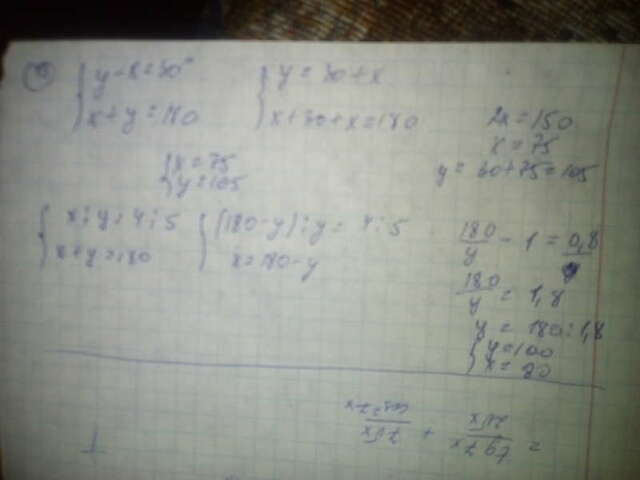 { y - x = 30°
{ x + y = 180
{ y = 30 + x
{ x + 30 + x = 180
2x = 150
x = 75
y = 30 + 75 = 105
{ x = 75
{ y = 105
{ x : y = 4 : 5
{ x + y = 180
{ (180 - y) : y = 4 : 5
{ x = 180 - y
180/y - 1 = 0,8
180/y = 1,8
y = 180 : 1,8
{ y = 100
{ x = 80